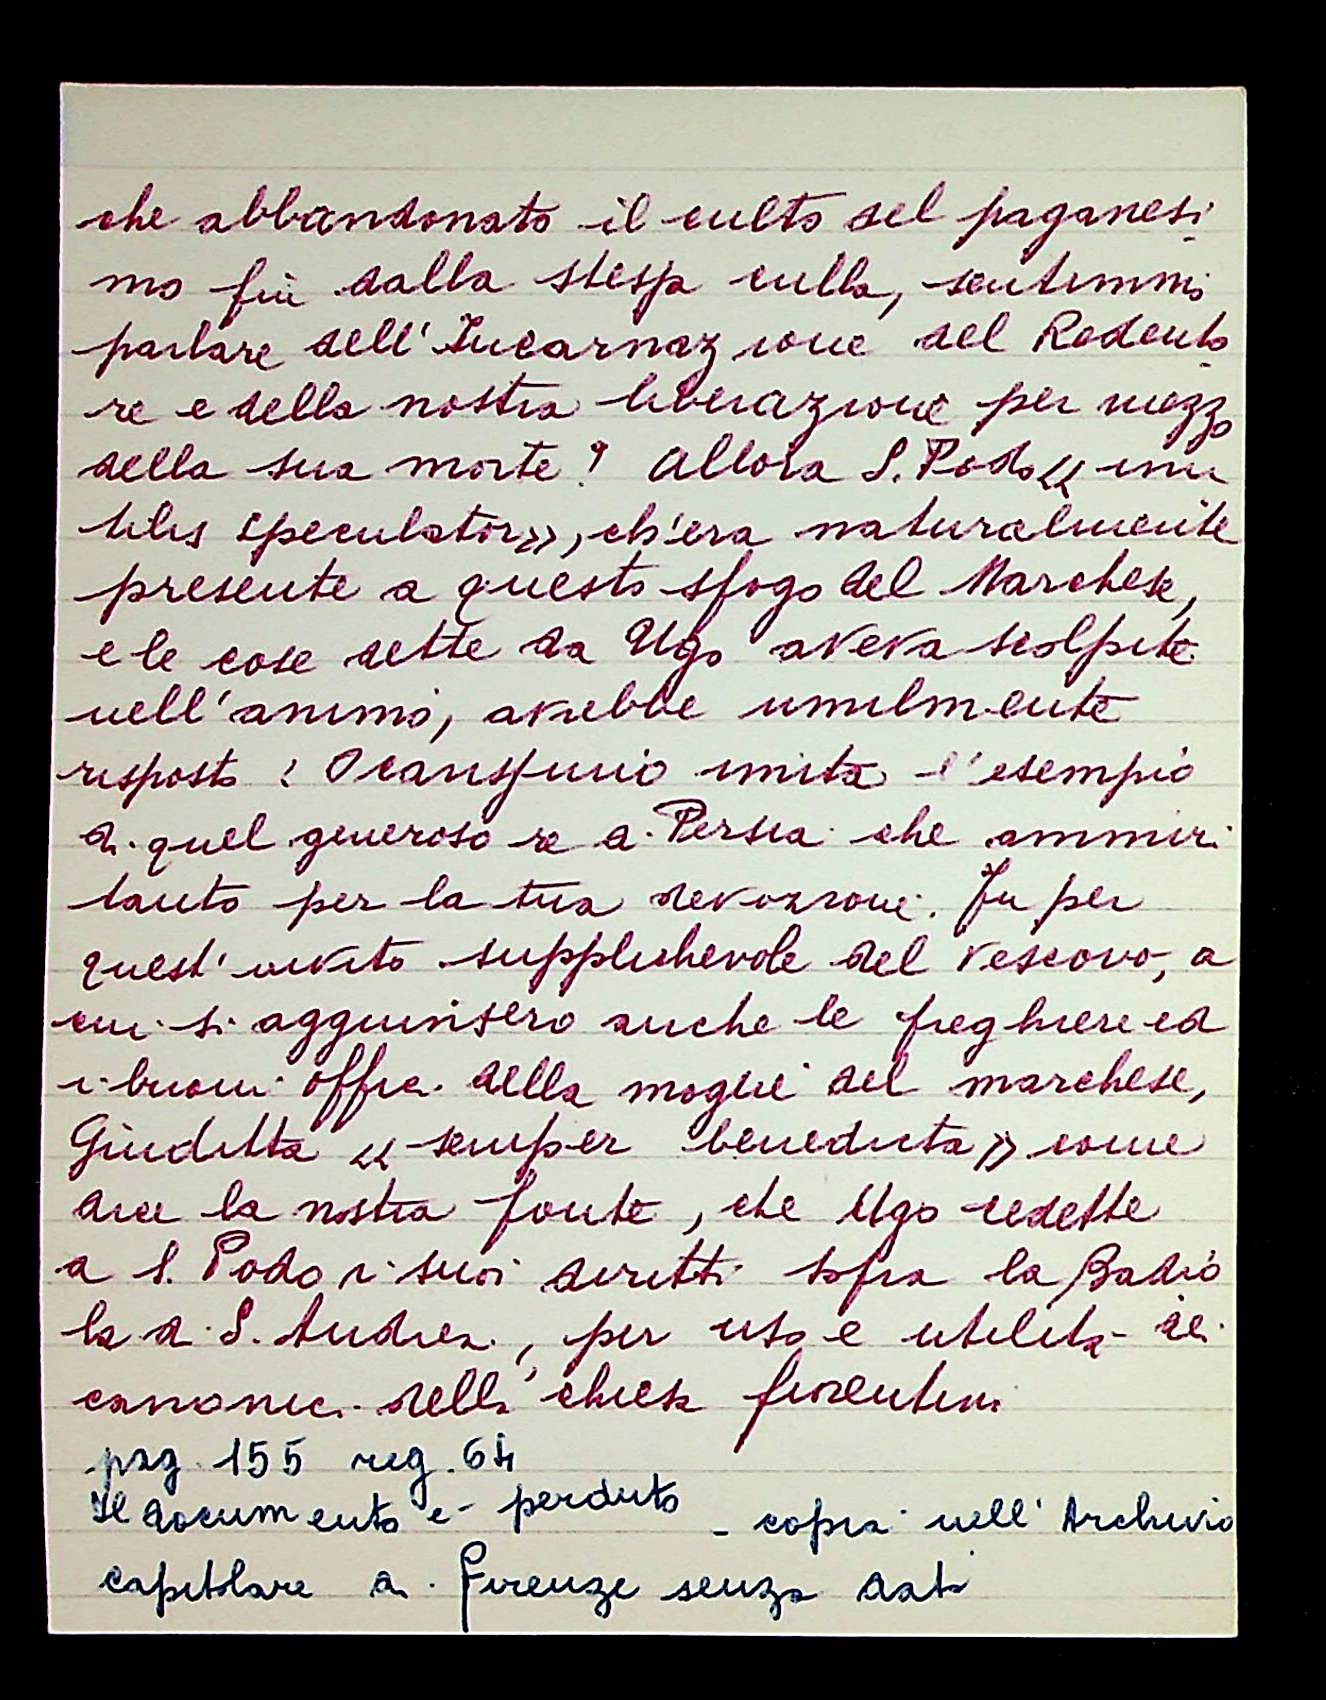 che abbandonato il culto del paganesi
mo fin dalla stessa culla, sentimmo
parlare dell'Incarnazione del Redento
re e della nostra liberazione per mezzo
della sua morte? Allora S. Podo « inu
tilis speculator», ch'era naturalmente
presente a questo sfogo del Marchese,
e le cose dette da Ugo aveva scolpite
nell'animo, avrebbe umilmente
risposto: O carissimo imita l'esempio
di quel generoso re di Persia che ammiri
tanto per la tua devozione. Fu per
quest'invito supplichevole del Vescovo, a
cui si aggiunsero anche le preghiere ed
i buoni offici della moglie del marchese,
Giuditta « semper benedicta» come
dice la nostra fonte, che Ugo cedette
a S. Podo i suoi diritti sopra la Badio
la di S. Andrea, per uso e utilità dei
canonici della chiesa fiorentina
pag. 155 reg. 64
Il documento è perduto - copia nell'Archivio
capitolare di Firenze senza data